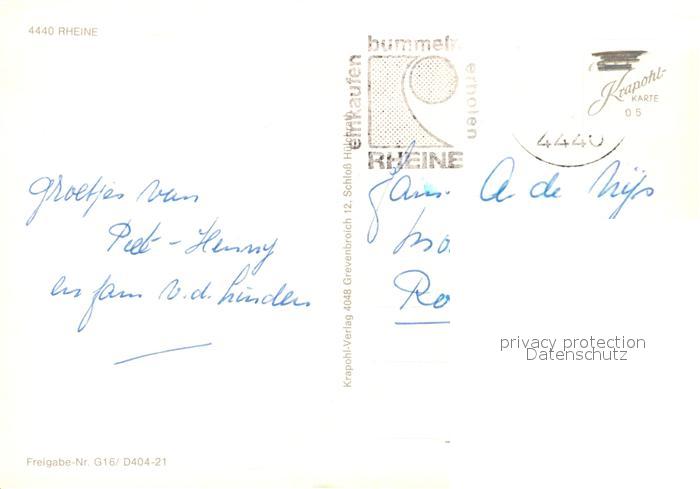 4440 RHEINE
bummeln
einkaufen
erholen
RHEINE
4440
Krapohl-
KARTE
0 5
groetjes van
Piet - Henny
en fam v.d. Linden
Fam. A de Nijs
Ro
Krapohl-Verlag 4048 Grevenbroich 12, Schloß Hülchrath
privacy protection
Datenschutz
Freigabe-Nr. G16/ D404-21